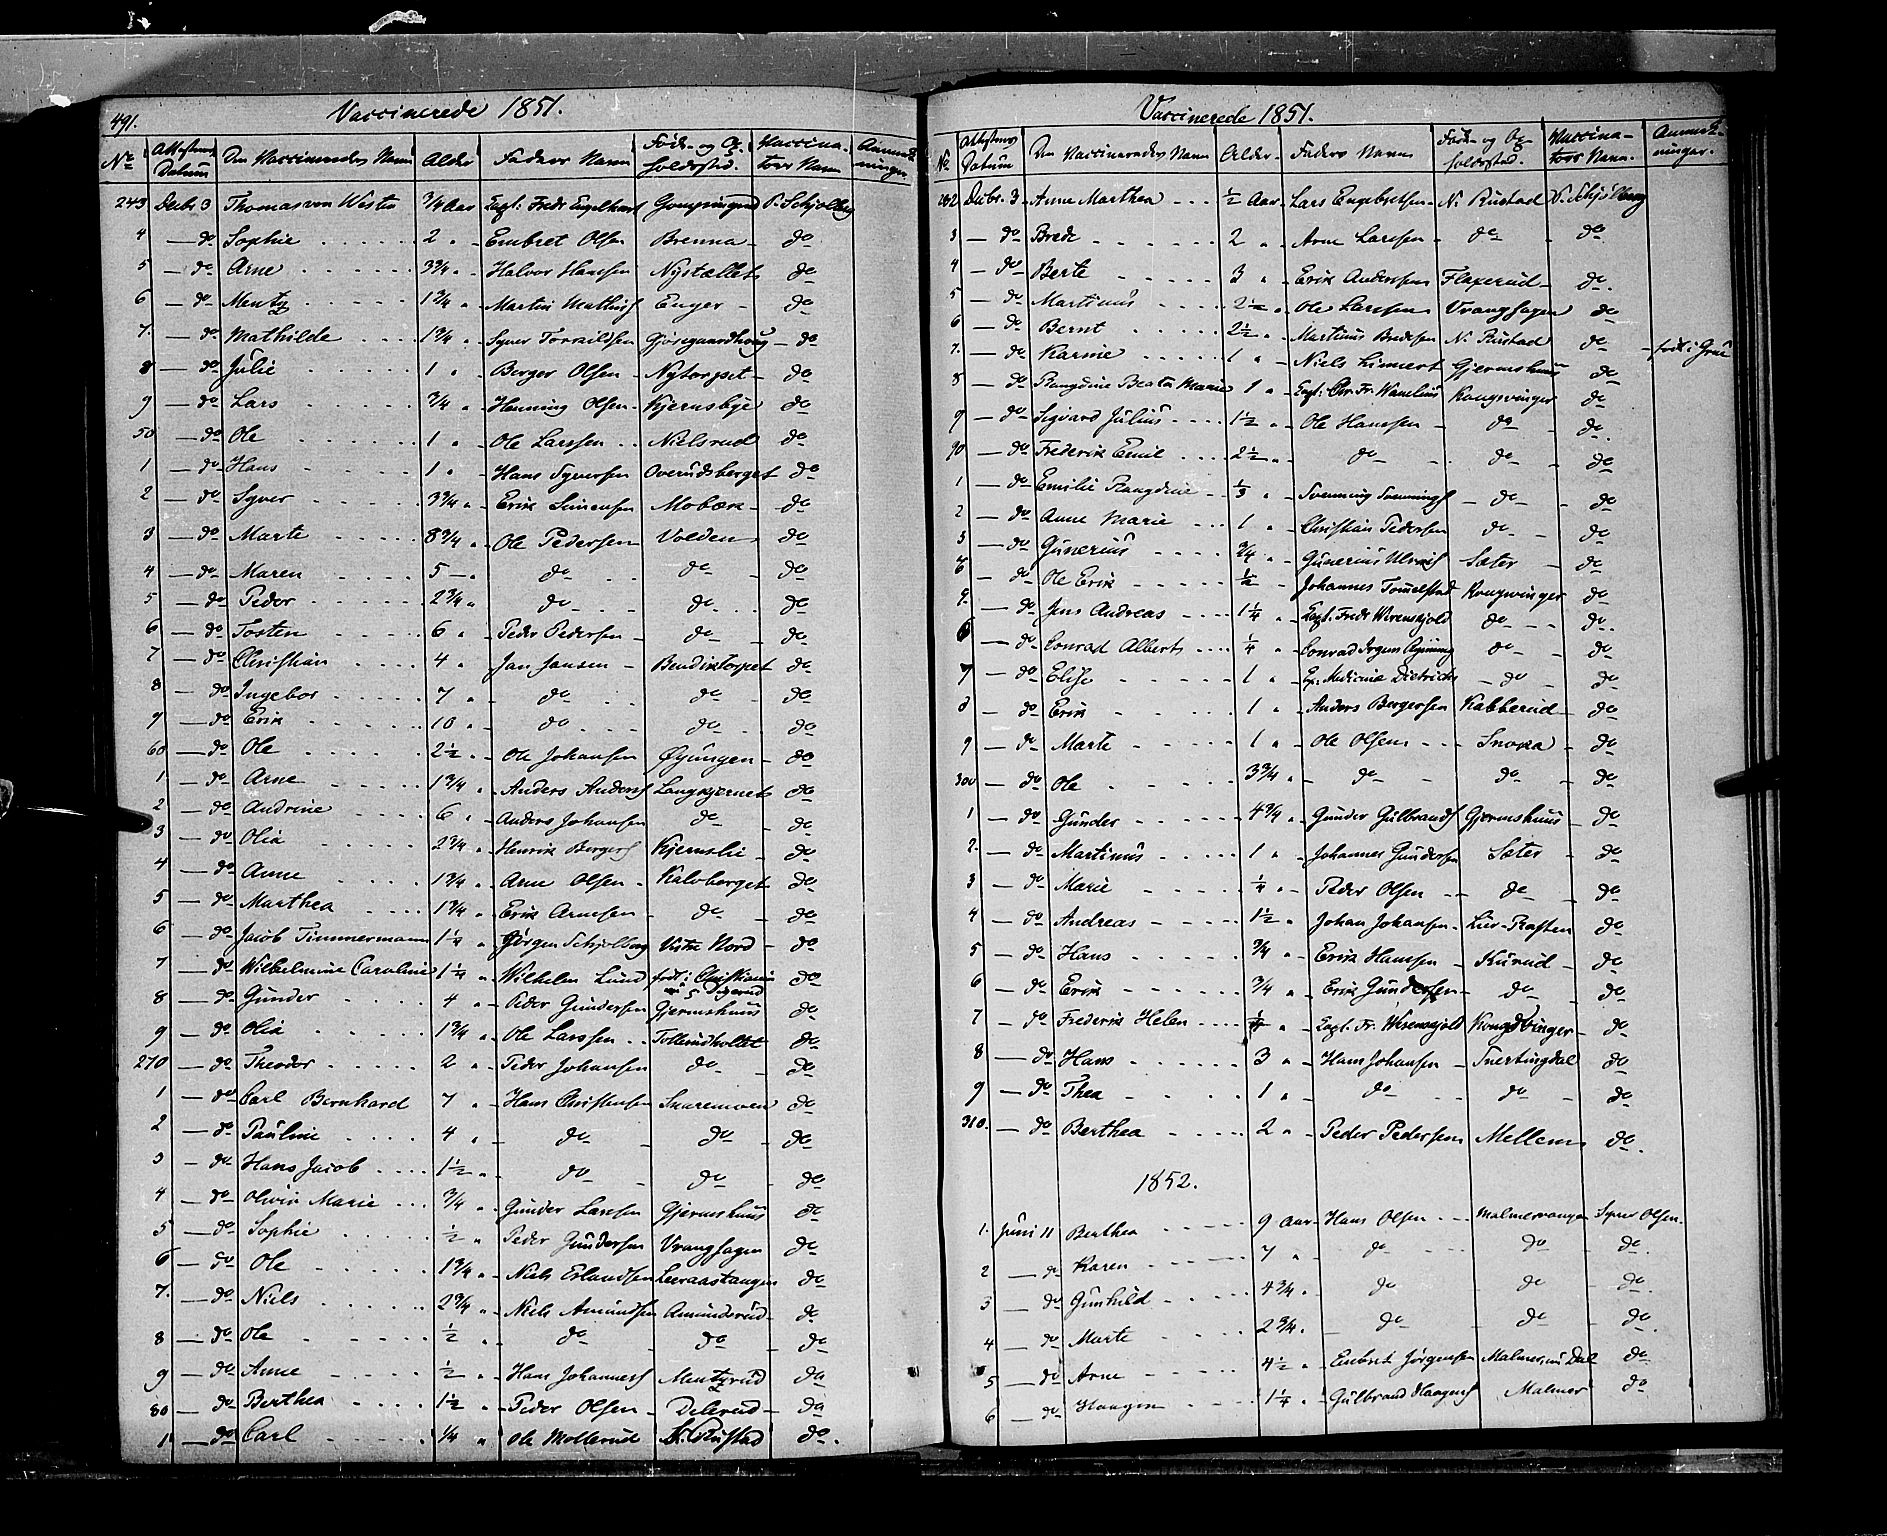 491.
Vaccinerede 1851.
No Attestens Datum Den Vaccineredes Navn Alder Faders Navn Føde- og Opholdssted. Vaccinators Navn Anmærkninger
243 Decbr 3 Thomas von Westen 3/4 Aar Capt: Fredr Engelhart P. Schjølberg
4 — do Sophie 2 " Embret Olsen Brenna do
5 — do Arne 3 3/4 " Halvor Hansen Nystællet do
6 — do Mentz 1 3/4 " Martin Mathis Enger do
7. — do Mathilde 1 3/4 " Syver Torvildsen Gjøsegaardhoug do
8 — do Julie 1 " Berger Olsen Nytorpet do
9 — do Lars 3/4 " Henning Olsen Kjernsbye do
50 — do Ole 1 " Ole Larssen Nielsrud do
1 — do Hans 1 " Hans Syversen Overudsberget do
2 — do Syver 3 3/4 " Erik Simensen Mobæk do
3 — do Marte 8 3/4 " Ole Pedersen Volden do
4 — do Maren 5 " do do do
5 — do Peder 2 3/4 " do do do
6 — do Tosten 6 " Peder Pedersen do do
7 — do Christian 4 " Jan Jansen Bendiktorpet do
8 — do Ingebor 7 " do do do
9 — do Erik 10 " do do do
60 — do Ole 2 1/2 " Ole Johansen Øyungen do
1 — do Arne 1 3/4 " Anders Anders Langkjernet do
2 — do Andrine 6 " Anders Johansen do do
3 — do Olia 2 3/4 " Henrik Bergers Kjernslie do
4 — do Anne 1 3/4 " Arne Olsen Kalvberget do
5 — do Marthea 1 3/4 " Erik Arnesen do do
6 — do Jacob Timmermann 1 1/4 " Jørgen Schjølberg Vestre Nord do
7 — do Wilhelmine Caroline 1 1/4 " Wilhelm Lund født i Christiania do
8 — do Gunder 4 " Peder Gundersen Gjermshuus do
9 — do Olia 1 3/4 " Ole Larssen Tollerudholtet do
270 — do Theodor 2 " Peder Johansen do do
1 — do Carl Bernhard 7 " Hans Christensen Snaremoen do
2 — do Pauline 4 " do do do
3 — do Hans Jacob 1 1/2 " do do do
4 — do Olivia Marie 3/4 " Gunder Larssen Gjermshuus do
5 — do Sophie 1/2 " Peder Gundersen Vrangsagen do
6 — do Ole 1 3/4 " Niels Erlandsen Leeraastangen do
7. — do Niels 2 3/4 " Niels Amundsen Amundsrud do
8 — do Ole 1/2 " do do do
9 — do Anne 1/2 " Hans Johannes Mentzrud do
80 — do Berthea 1 1/2 " Peder Olsen Delerud do
1 — do Carl 1/4 " Ole Mollerud Rustad do.
Vaccinerede 1851.
No Attestens Datum Den Vaccineredes Navn Alder Faders Navn Føde- og Opholdssted. Vaccinators Navn. Anmærkninger.
282 Decbr. 3 Anne Marthea 1/2 Aar Lars Engebretsen N. Rustad P. Schjølberg
3 — do Brede 2 " Arne Larssen do do
4 — do Berte 3 " Erik Anderssen Flaxerud do.
5 — do Martinus 2 1/2 " Ole Larssen Vrangsagen do
6 — do Bernt 2 1/2 " Martinus Bredesen N. Rustad do
7. — do Karine 1 " Niels Linnert Gjermshuus do født i Grue
8 — do Rangdine Beata Marie 1 " Capt: Chr. Fr. Kongsvinger do
9 — do Sigvard Julius 1 1/2 " Ole Hanssen do do.
90 — do Frederik Emil 2 1/2 " do do do
1 — do Emilie Rangdine 1/3 " Svenning Svennings do do
2 — do Anne Marie 1 " Christian Pedersen do do
3 — do Gunerius 3/4 " Gunerius Ulriks Sæter do
do Ole Erik 1/2 Johannes Tommelstad Kongsvinger do
do Jens Andreas 1 1/4 " Capt. Fredr Werenskjold do do.
6 — do Conrad Albert 1/4 " Conrad do do
7 — do Elise 1 " do do
8 do Erik 1 " Anders Bergersen Kabberud do
9 — do Marte 1 " Ole Olsen Snoxa do
300 — do Ole 3 3/4 " do do do
1 — do Gunder 4 3/4 " Gunder Gulbrands Gjermshuus do
2. — do Martinus 1 " Johannes Gundersen Sæter do
3 — do Marie 1/4 " Peder Olsen do do
4 — do Andreas 1 1/2 " Johan Johansen Lier-Rasten do
5 — do Hans 3/4 " Erik Hansen Kurud do
6 — do Erik 3/4 " Erik Gundersen do do
7 — do Frederik Helen " Capt. Fr. Werenskjold Kongsvinger do
8 — do Hans 3 " Hans Johansen Snertingdal do
9 — do Thea 1 " do do do
310. — do Berthea 2 " Peder Pedersen Mellem do.
1852.
1. Juni 11 Berthea 9 Aar Hans Olsen Malmervangen Syver Olsen.
2 — do Karen 7 " do do do.
3 — do Gunhild 4 3/4 " do do do
4 — do Marte 2 3/4 " do do do.
5 — do Arne 4 1/2 " Embret Jørgensen Malmer, Dal do
6 — do Haagen 1 1/4 " Gulbrand Haagens Malmer do